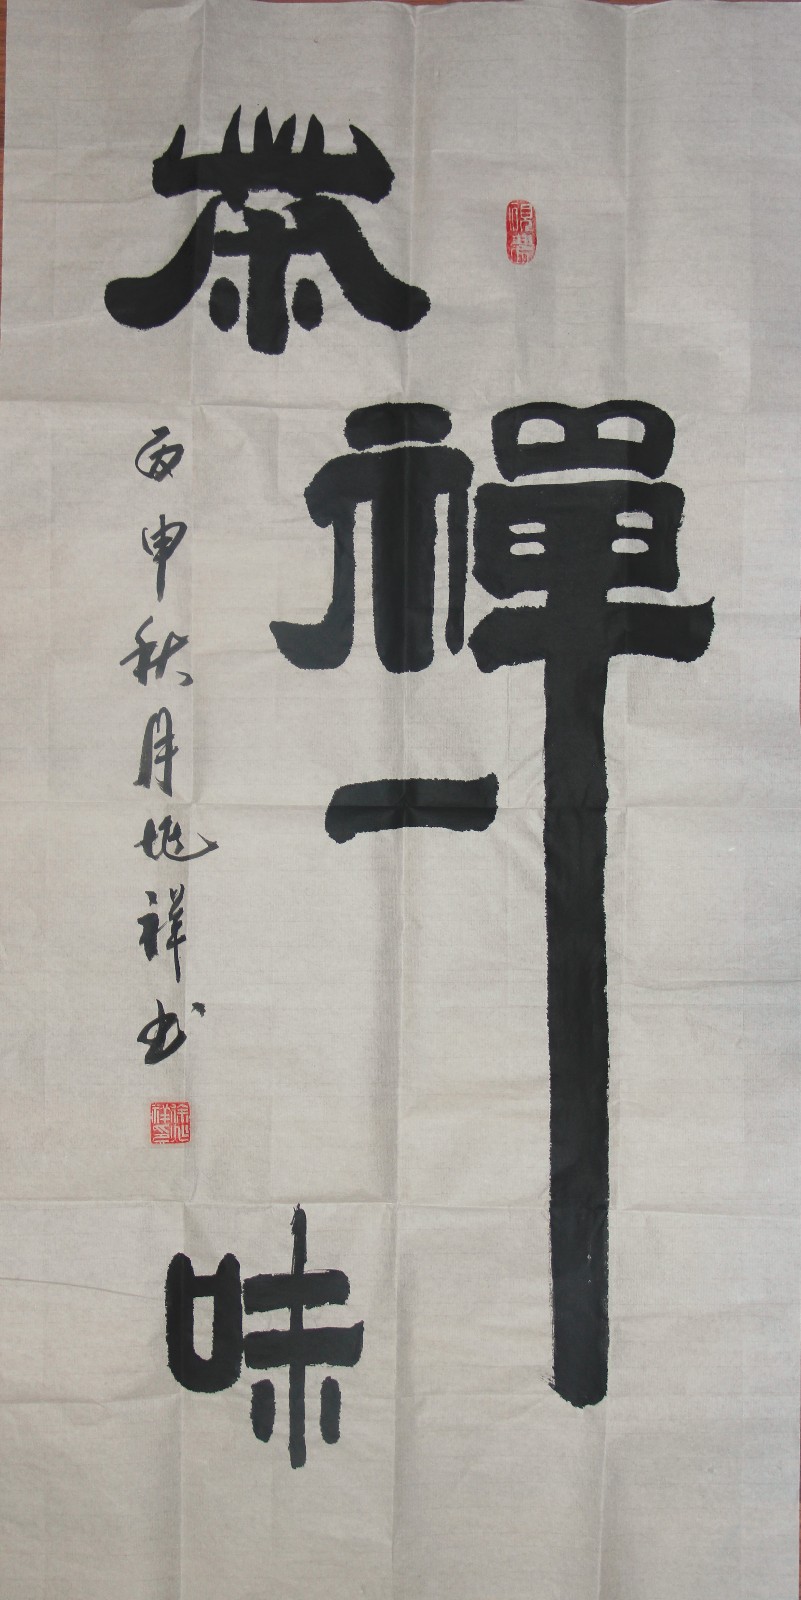 茶禪一味
丙申秋月兆祥书